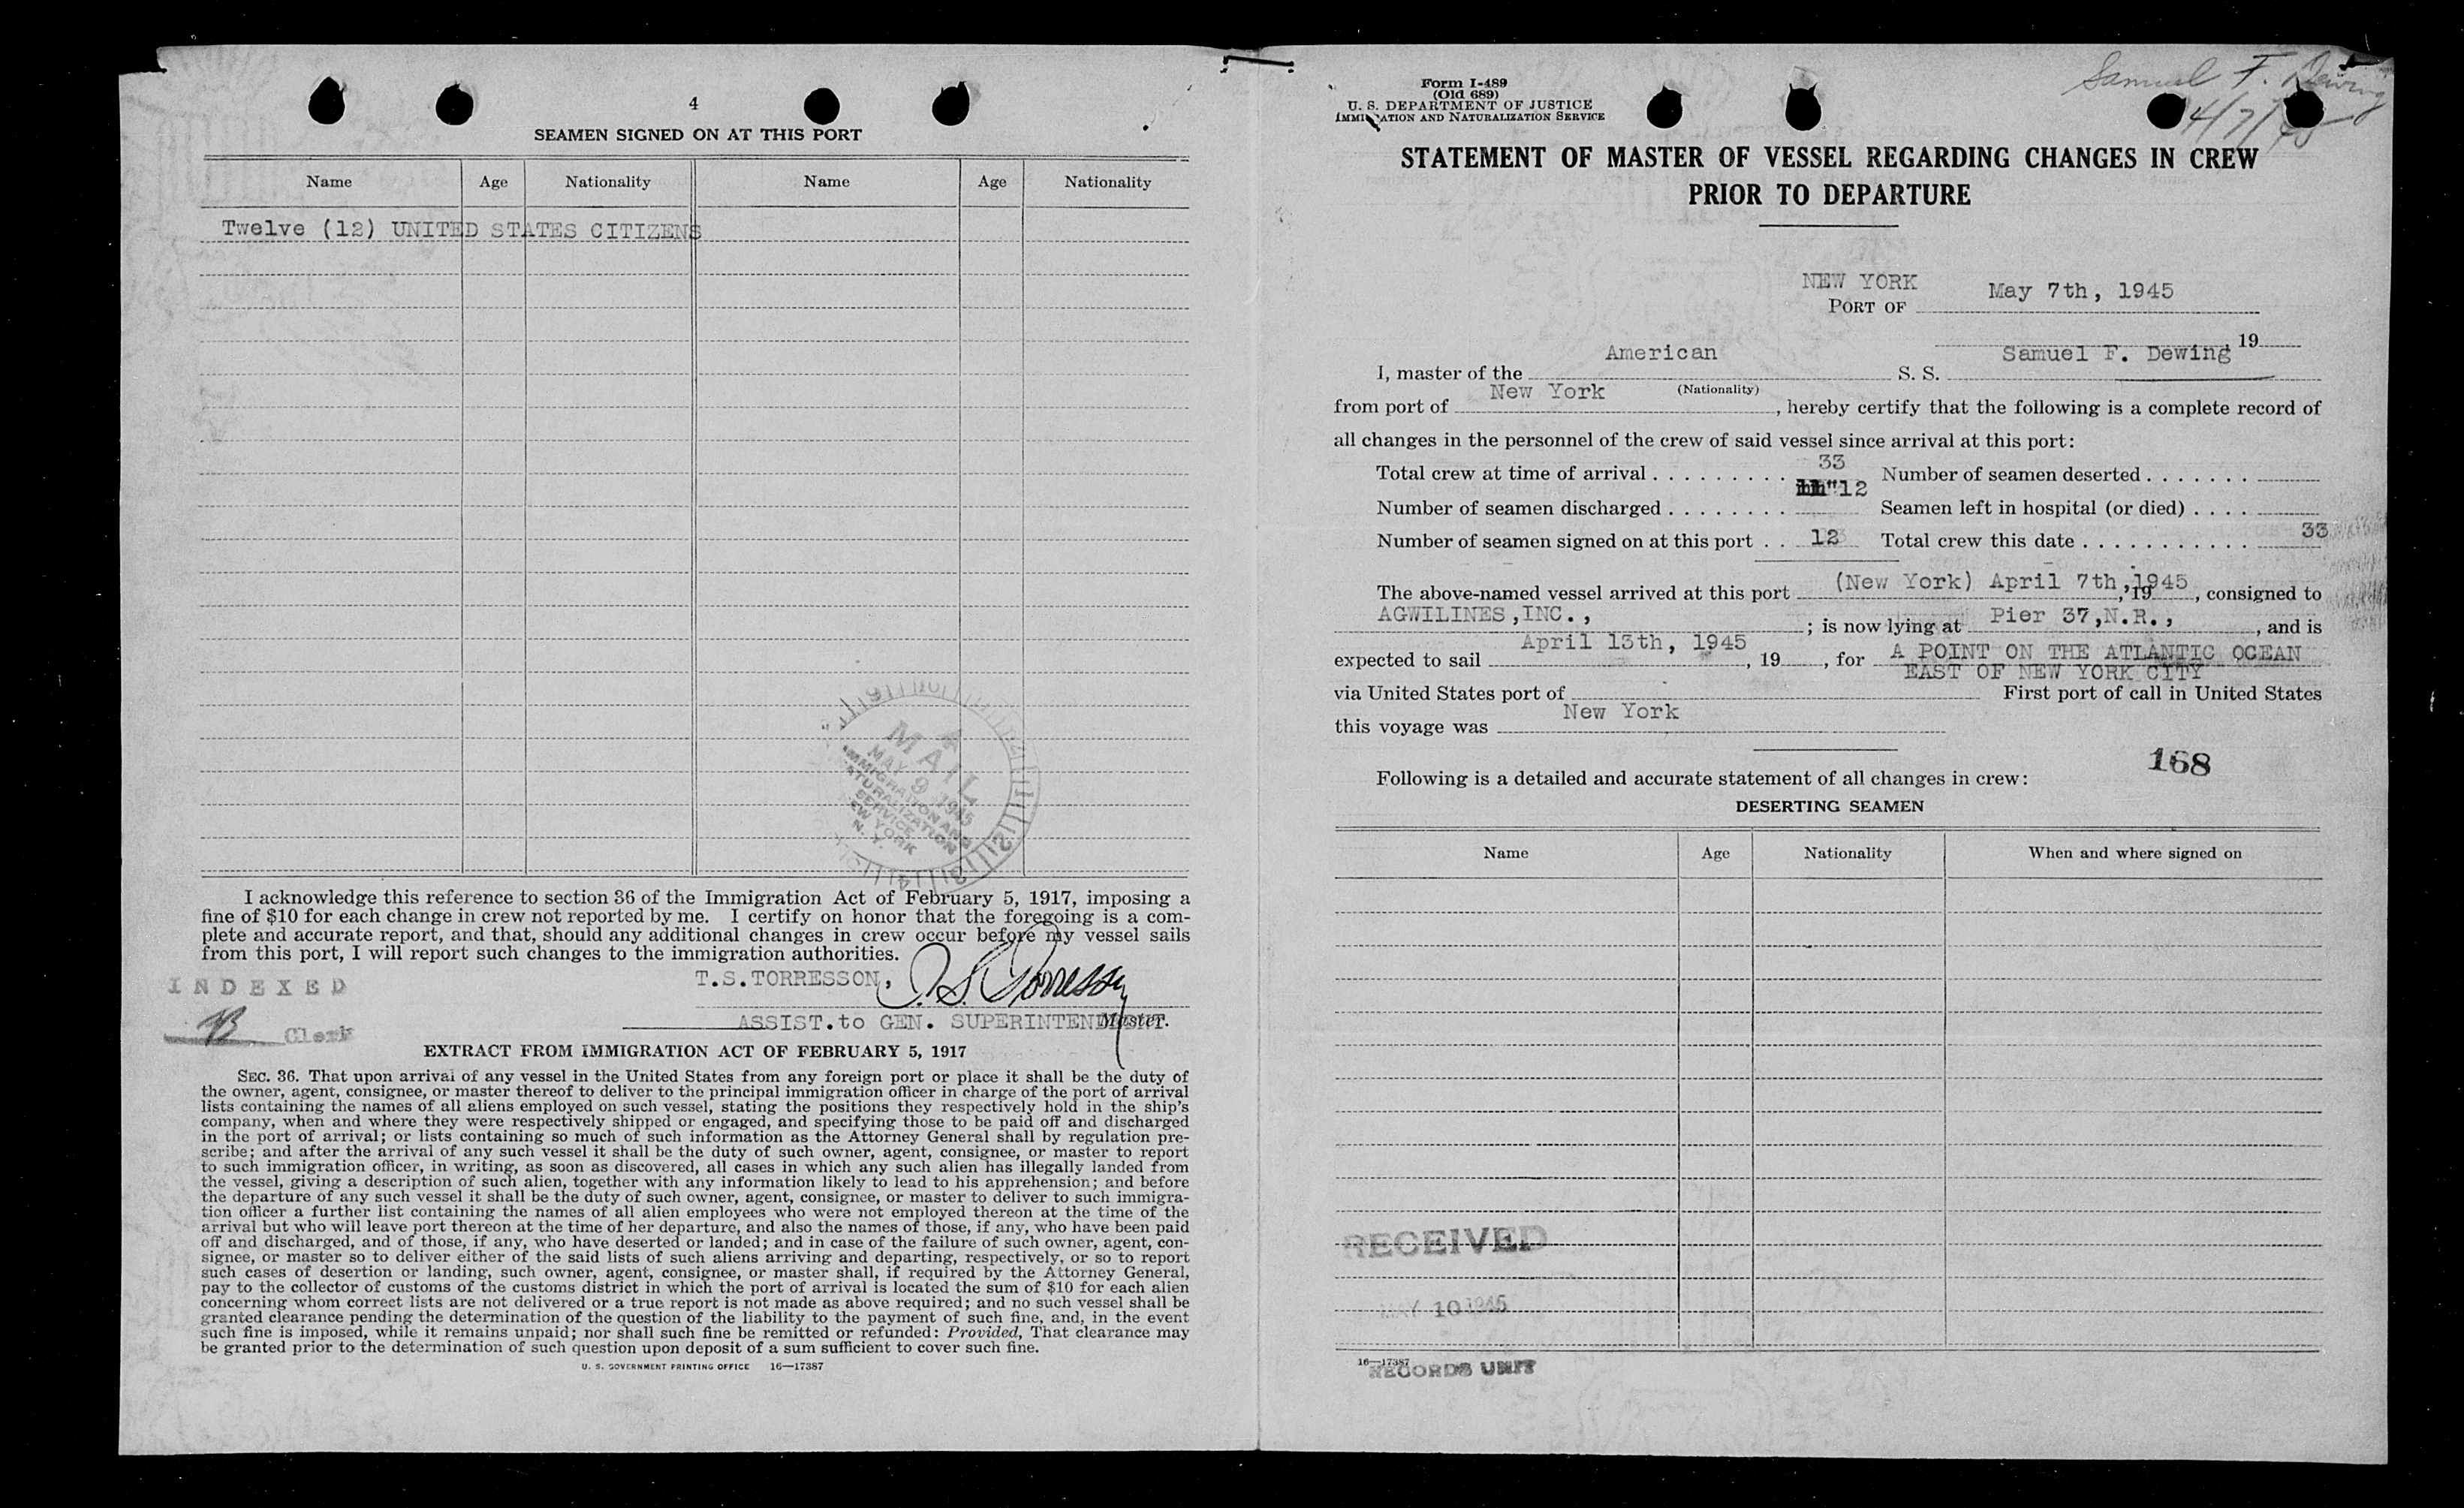 4
SEAMEN SIGNED ON AT THIS PORT
Name Age Nationality Name Age Nationality
Twelve (12) UNITED STATES CITIZENS
MAIL
MAY 9 1945
IMMIGRATION AND
NATURALIZATION
SERVICE
NEW YORK
N. Y.
I acknowledge this reference to section 36 of the Immigration Act of February 5, 1917, imposing a
fine of $10 for each change in crew not reported by me. I certify on honor that the foregoing is a com-
plete and accurate report, and that, should any additional changes in crew occur before my vessel sails
from this port, I will report such changes to the immigration authorities.
INDEXED
T.S.TORRESSON, T. S. Torresson
Clerk
ASSIST.to GEN. SUPERINTENDENT Master.
EXTRACT FROM IMMIGRATION ACT OF FEBRUARY 5, 1917
SEC. 36. That upon arrival of any vessel in the United States from any foreign port or place it shall be the duty of
the owner, agent, consignee, or master thereof to deliver to the principal immigration officer in charge of the port of arrival
lists containing the names of all aliens employed on such vessel, stating the positions they respectively hold in the ship's
company, when and where they were respectively shipped or engaged, and specifying those to be paid off and discharged
in the port of arrival; or lists containing so much of such information as the Attorney General shall by regulation pre-
scribe; and after the arrival of any such vessel it shall be the duty of such owner, agent, consignee, or master to report
to such immigration officer, in writing, as soon as discovered, all cases in which any such alien has illegally landed from
the vessel, giving a description of such alien, together with any information likely to lead to his apprehension; and before
the departure of any such vessel it shall be the duty of such owner, agent, consignee, or master to deliver to such immigra-
tion officer a further list containing the names of all alien employees who were not employed thereon at the time of the
arrival but who will leave port thereon at the time of her departure, and also the names of those, if any, who have been paid
off and discharged, and of those, if any, who have deserted or landed; and in case of the failure of such owner, agent, con-
signee, or master so to deliver either of the said lists of such aliens arriving and departing, respectively, or so to report
such cases of desertion or landing, such owner, agent, consignee, or master shall, if required by the Attorney General,
pay to the collector of customs of the customs district in which the port of arrival is located the sum of $10 for each alien
concerning whom correct lists are not delivered or a true report is not made as above required; and no such vessel shall be
granted clearance pending the determination of the question of the liability to the payment of such fine, and, in the event
such fine is imposed, while it remains unpaid; nor shall such fine be remitted or refunded: Provided, That clearance may
be granted prior to the determination of such question upon deposit of a sum sufficient to cover such fine.
U. S. GOVERNMENT PRINTING OFFICE 16—17387
Samuel F. Dewing
4/7/45
Form I-489
(Old 689)
U. S. DEPARTMENT OF JUSTICE
IMMIGRATION AND NATURALIZATION SERVICE
STATEMENT OF MASTER OF VESSEL REGARDING CHANGES IN CREW
PRIOR TO DEPARTURE
NEW YORK
PORT OF May 7th, 1945
19
I, master of the American S. S. Samuel F. Dewing
(Nationality)
from port of New York, hereby certify that the following is a complete record of
all changes in the personnel of the crew of said vessel since arrival at this port:
Total crew at time of arrival 33 Number of seamen deserted
Number of seamen discharged 12 Seamen left in hospital (or died)
Number of seamen signed on at this port 12 Total crew this date 33
The above-named vessel arrived at this port (New York) April 7th,1945, 19, consigned to
AGWILINES,INC., ; is now lying at Pier 37,N.R., , and is
expected to sail April 13th, 1945, 19, for A POINT ON THE ATLANTIC OCEAN
EAST OF NEW YORK CITY
via United States port of First port of call in United States
this voyage was New York
168
Following is a detailed and accurate statement of all changes in crew:
DESERTING SEAMEN
Name Age Nationality When and where signed on
RECEIVED
MAY 10 1945
16—17387
RECORDS UNIT